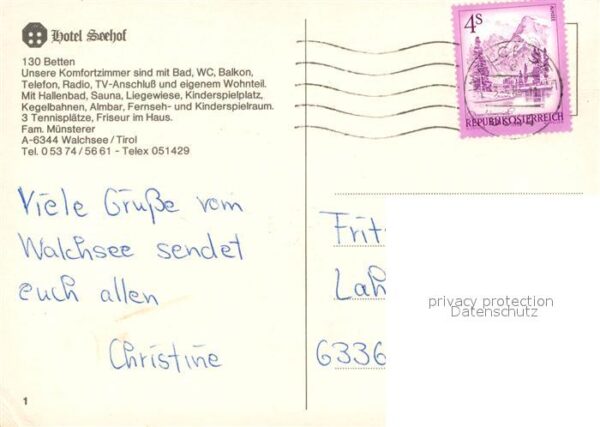 Hotel Seehof
130 Betten
Unsere Komfortzimmer sind mit Bad, WC, Balkon,
Telefon, Radio, TV-Anschluß und eigenem Wohnteil.
Mit Hallenbad, Sauna, Liegewiese, Kinderspielplatz,
Kegelbahnen, Almbar, Fernseh- und Kinderspielraum.
3 Tennisplätze, Friseur im Haus.
Fam. Münsterer
A-6344 Walchsee / Tirol
Tel. 0 53 74 / 56 61 - Telex 051429
4S
REPUBLIK ÖSTERREICH
Viele Grüße vom
Walchsee sendet
euch allen
Christine
Frit
Lah
6336
privacy protection
Datenschutz
1